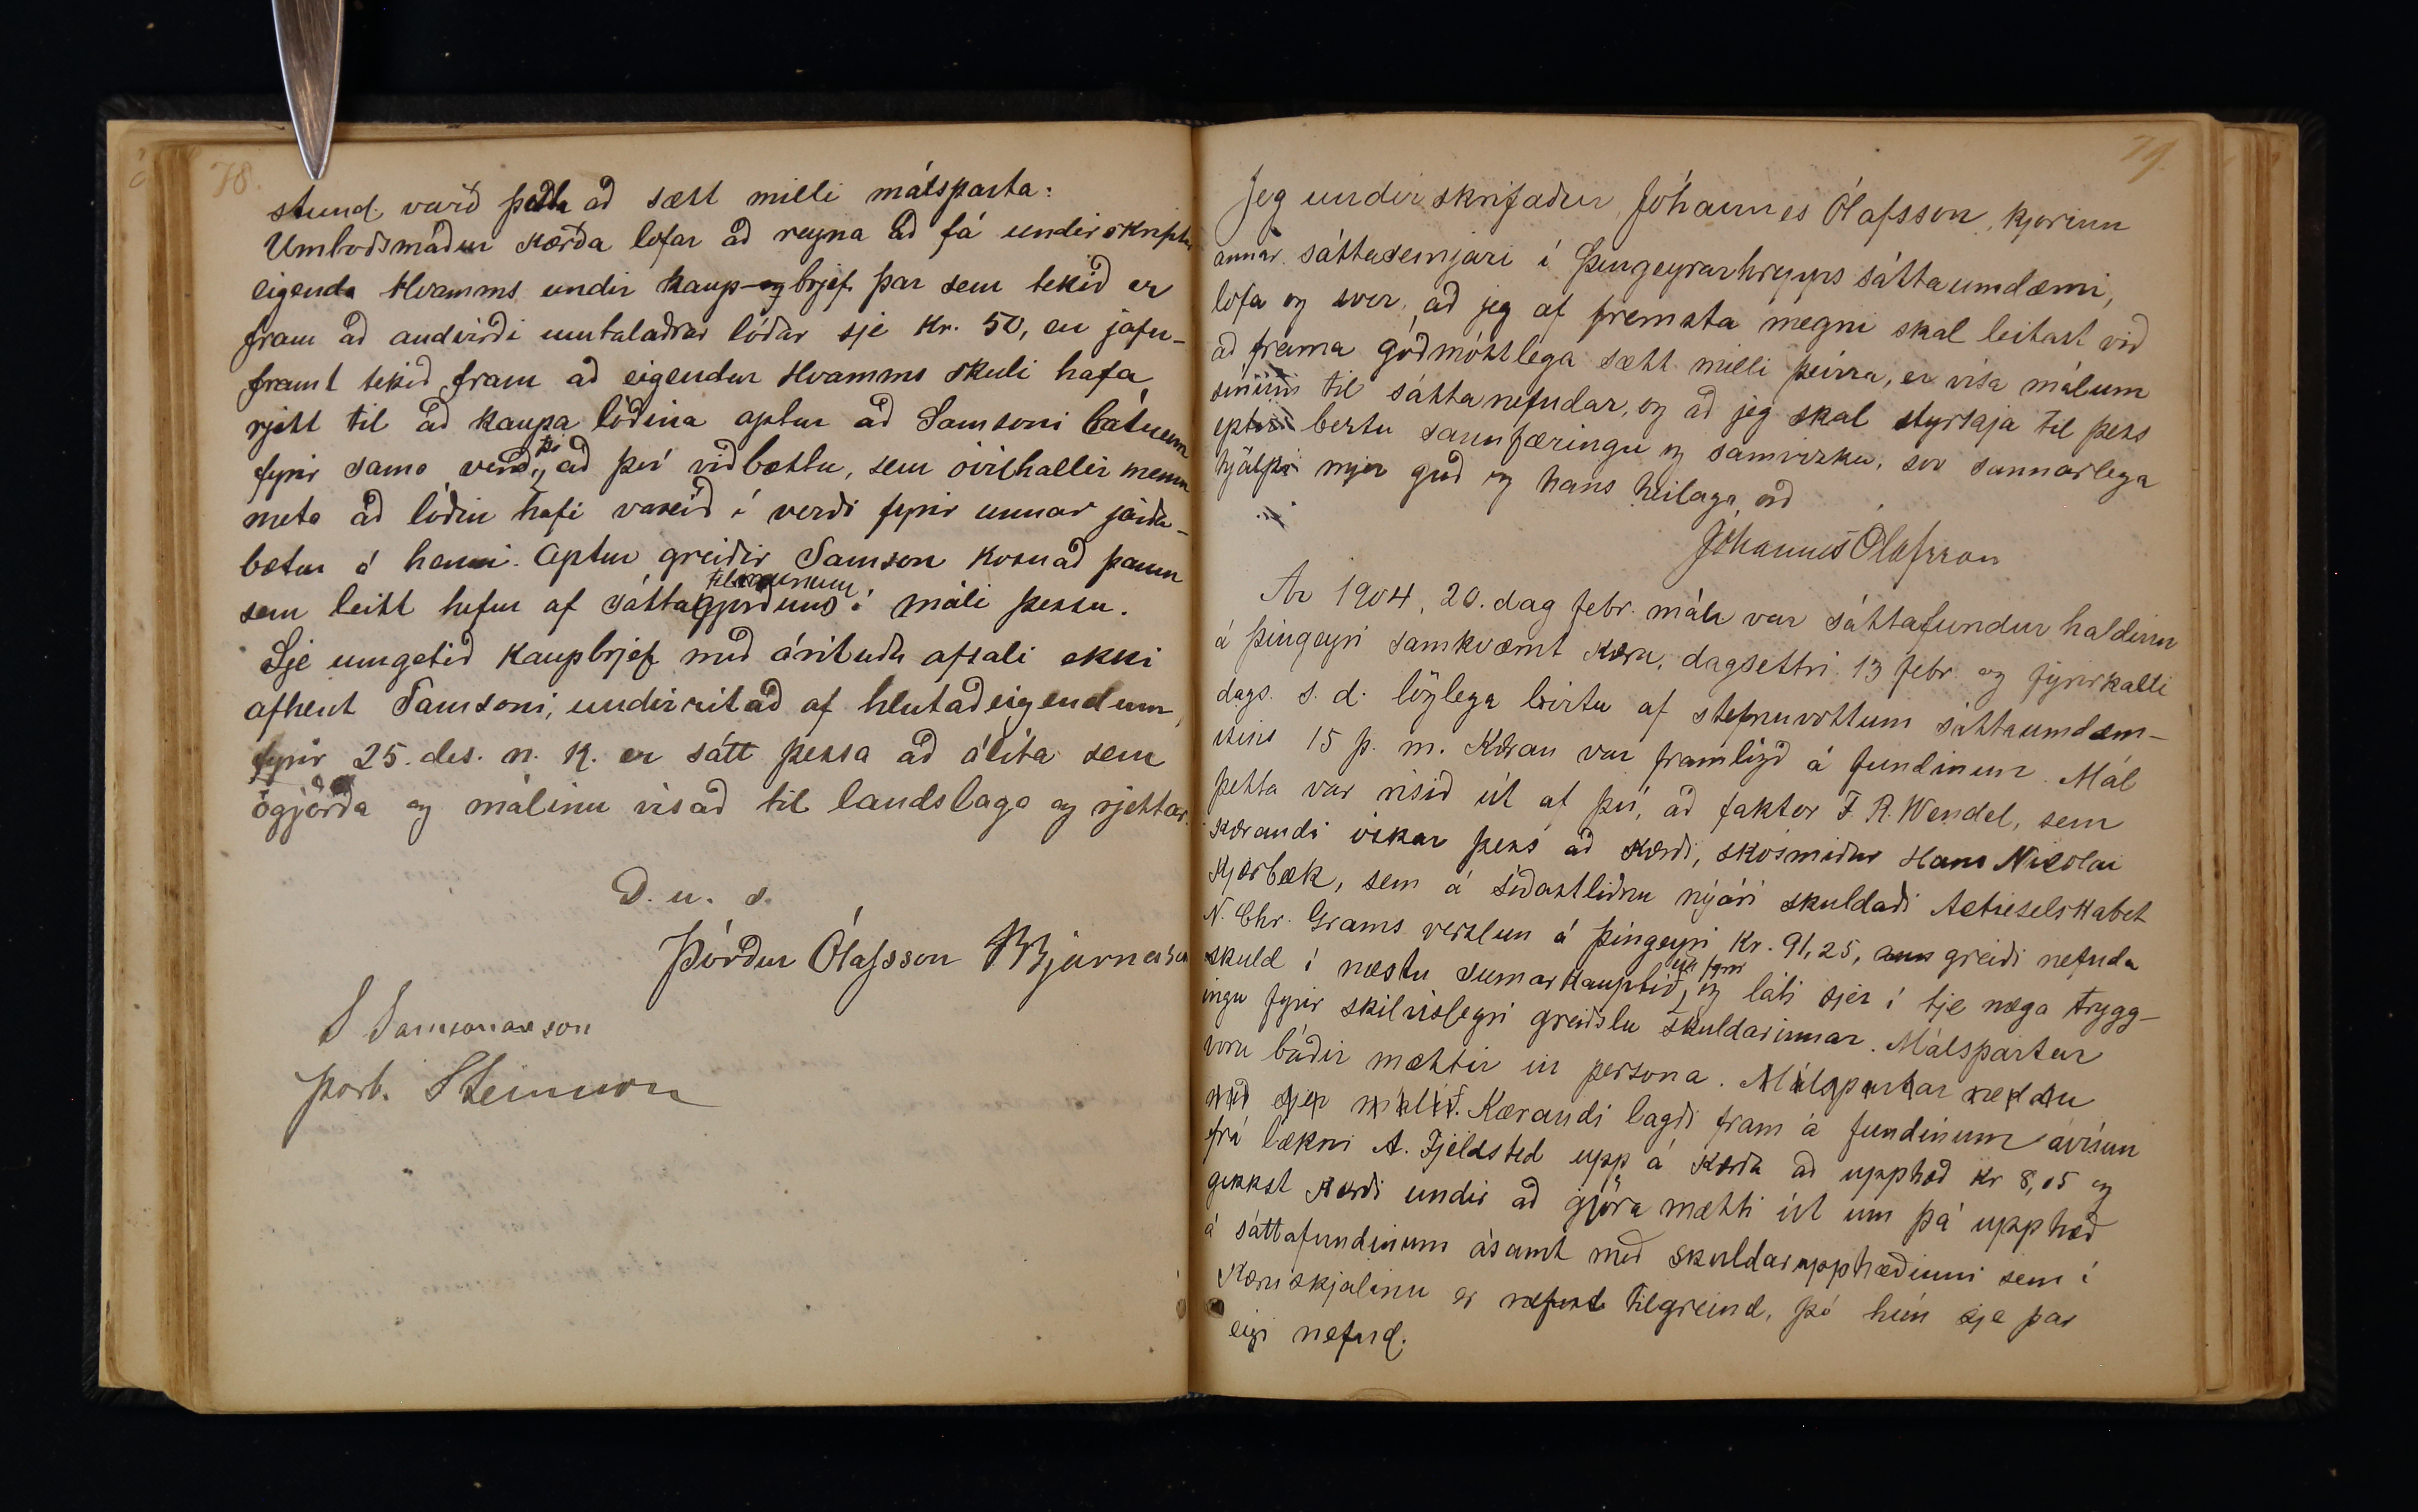 78.
stund varð þetta að sætt milli málsparta:
Umboðsmaður kærða lofar að reyna að fá underskript
eigenda Hvamms undir kaup-og brjef þar sem tekið er
fram að andvirði umtalaðrar lóðar sje kr. 50, en jafn-
framt tekið fram að eigendur Hvamms skuli hafa
rjett til að kaupa lóðina aptur að Samsoni látnum
fyrir sama verð, þó að því viðbættu, sem óvilhallir menn
meta að lóðin hafi vaxið í verði fyrir unnar jarða-
bætur á henni. Aptur greiðir Samson kosnað þann
sem leitt hefur af sáttatilraununum í máli þessu.
Sje umgetið kaupbrjef með árituðu afsali ekki
afhent Samsoni, undirritað af hlutaðeigendum,
fyrir 25. des. n. k. er sátt þessa að álíta sem
ógjörða og málinu vísað til landslaga og rjettar.
D. u. s.
Þórður Ólafsson Bjarnason
S Samsonarson
Þorb. Steinsson
79.
Jeg undirskrifaður, Jóhannes Ólafsson, kjörinn
annar sáttasemjari í Þingeyrarhrepps sáttaumdæmi,
lofa og sver, að jeg af fremsta megni skal leitast við
að frama góðmóttlega sætt milli þeirra, er vísa málum
sínum til sáttanefndar, og að jeg skal styrkja til þess
eptir bestu sannfæringu og samvizku, svo sannarlega
hjálpi mjer guð og hans heilaga orð
Jóhannes Ólafsson
Ár 1904, 20. dag febr. mán var sáttafundur haldinn
á Þingeyri samkvæmt kæru, dagsettri 13 febr. og fyrirkalli
dags. s. d. löglega birtu af stefnuvottum sáttaumdæm-
isins 15 þ. m. Kæran var framlögð á fundinum. Mál
þetta var risið út af því, að faktor F. R. Wendel, sem
kærandi óskar þess að kærði, skósmiður Hans Nicolai
Kjærbæk, sem á síðastliðnu nýári skuldaði Actieselskabet
N. Chr. Grams verzlun á Þingeyri kr. 91,25, greiði nefnda
skuld í næstu sumarkauptíð, og láti sjer í tje næga trygg-
ingu fyrir skilvíslegri greiðslu skuldarinnar. Málspartar
voru báðir mættir in persona. Málspartar reddu
með sjer málið. Kærandi lagði fram á fundinum ávísun
frá lækni A. Fjeldsted upp á kærða að upphæð kr 8,05 og
gekkst kærði undir að gjöra mætti út um þá upphæð
á sáttafundinum ásamt með skuldarupphæðinni sem í
kæruskjalinu er nefnd tilgreind, þó hún sje þar
eigi nefnd.